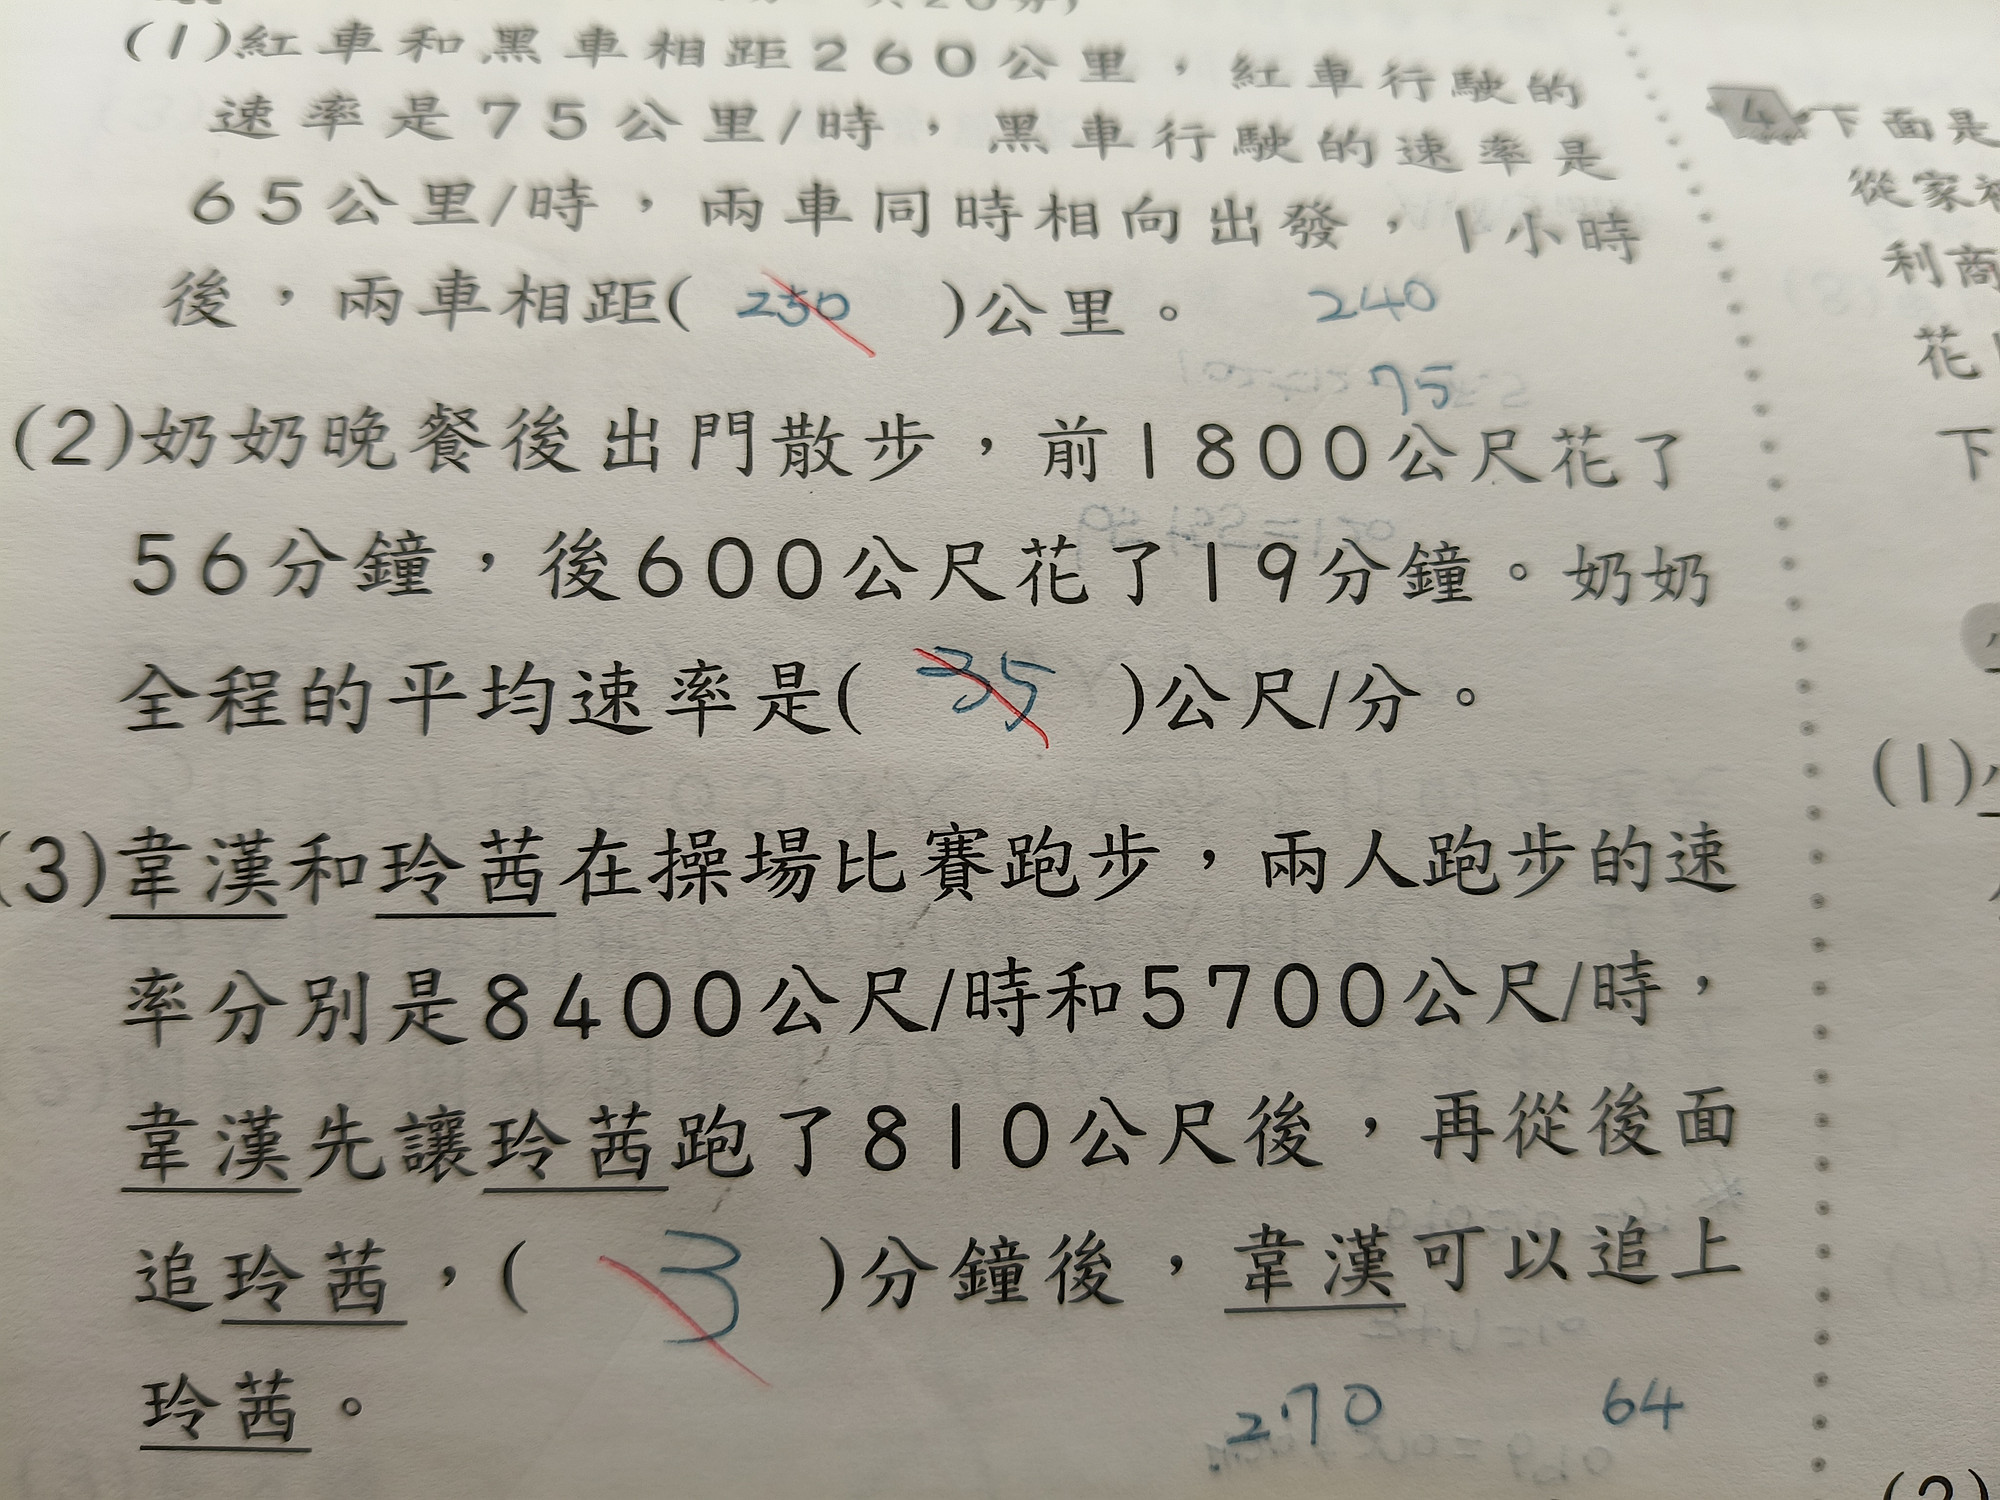 (1)紅車和黑車相距260公里，紅車行駛的
速率是75公里/時，黑車行駛的速率是
65公里/時，兩車同時相向出發，1小時
後，兩車相距( 250 )公里。 240
75
(2)奶奶晚餐後出門散步，前1800公尺花了
56分鐘，後600公尺花了19分鐘。奶奶
全程的平均速率是( 35 )公尺/分。
(3)韋漢和玲茜在操場比賽跑步，兩人跑步的速
率分別是8400公尺/時和5700公尺/時，
韋漢先讓玲茜跑了810公尺後，再從後面
追玲茜，( 3 )分鐘後，韋漢可以追上
玲茜。
270 64
4 下面是
從家
利商
花
下
(1)
(2)